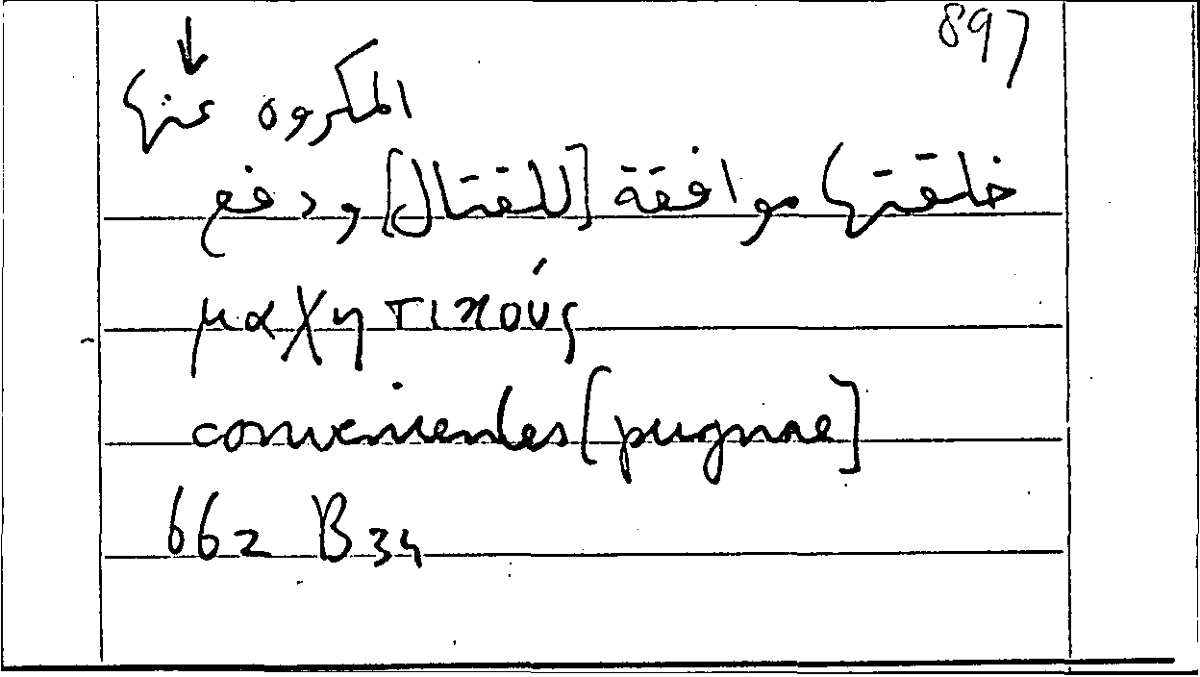 897
المكروه عنها
خلقتها موافقة [للقتال] ودفع
μαχητικούς
convenientes [pugnae]
662 B34